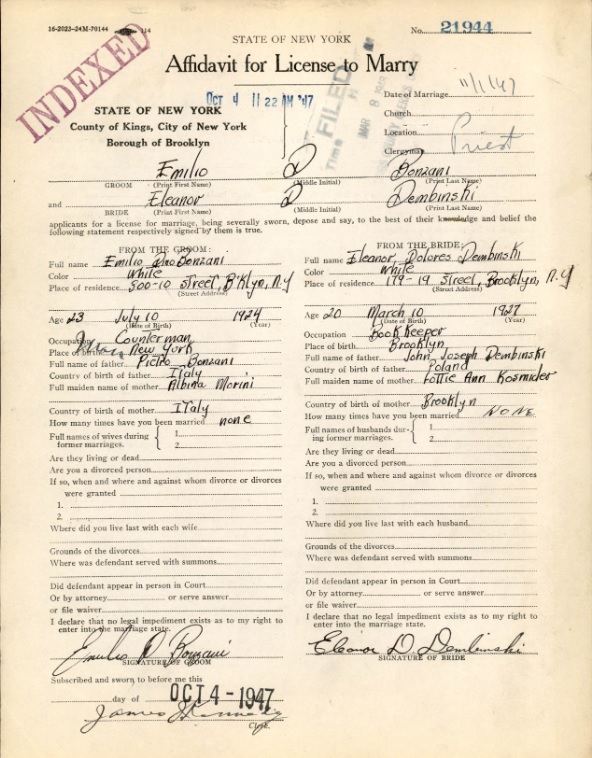 16-2023-24M-70144 114
No. 21944
STATE OF NEW YORK
Affidavit for License to Marry
INDEXED
OCT 4 11 22 AM '47
FILED
Time
MAR 8
STATE OF NEW YORK
County of Kings, City of New York
Borough of Brooklyn
Date of Marriage 11/1/47
Church
Location
Clergyman Priest
Emilio D Bonzani
GROOM (Print First Name) (Middle Initial) (Print Last Name)
and Eleanor D Dembinski
BRIDE (Print First Name) (Middle Initial) (Print Last Name)
applicants for a license for marriage, being severally sworn, depose and say, to the best of their knowledge and belief the
following statement respectively signed by them is true.
FROM THE GROOM:
Full name Emilio Dino Bonzani
Color White
Place of residence 500-10 Street, B'klyn, N.Y
(Street Address)
Age 23 July 10 1924
(Date of Birth) (Year)
Occupation Counterman
Place of birth New York
Full name of father Pietro Bonzani
Country of birth of father Italy
Full maiden name of mother Albina Morini
Country of birth of mother Italy
How many times have you been married none
Full names of wives during
former marriages.
1.
2.
Are they living or dead
Are you a divorced person
If so, when and where and against whom divorce or divorces
were granted
1.
2.
Where did you live last with each wife
Grounds of the divorces
Where was defendant served with summons
Did defendant appear in person in Court
Or by attorney or serve answer
or file waiver
I declare that no legal impediment exists as to my right to
enter into the marriage state.
Emilio D. Bonzani
SIGNATURE OF GROOM
FROM THE BRIDE:
Full name Eleanor, Dolores Dembinski
Color White
Place of residence 179-19 Street, Brooklyn, N.Y
(Street Address)
Age 20 March 10 1927
(Date of Birth) (Year)
Occupation Bookkeeper
Place of birth Brooklyn
Full name of father John Joseph Dembinski
Country of birth of father Poland
Full maiden name of mother Lottie Ann
Country of birth of mother Brooklyn
How many times have you been married NONE
Full names of husbands dur-
ing former marriages.
1.
2.
Are they living or dead
Are you a divorced person
If so, when and where and against whom divorce or divorces
were granted
1.
2.
Where did you live last with each husband
Grounds of the divorces
Where was defendant served with summons
Did defendant appear in person in Court
Or by attorney or serve answer
or file waiver
I declare that no legal impediment exists as to my right to
enter into the marriage state.
Eleanor D. Dembinski
SIGNATURE OF BRIDE
Subscribed and sworn to before me this
day of OCT 4 - 1947
James
Clerk.